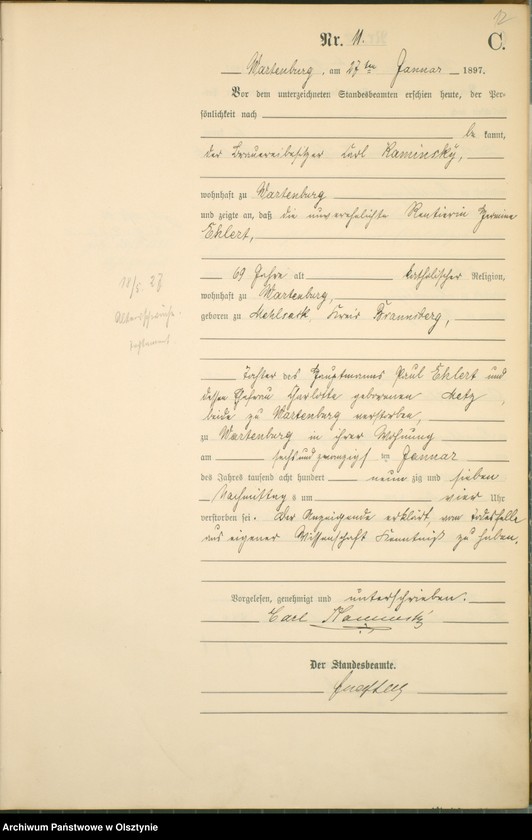 12
Nr. 11. C.
Wartenburg, am 27ten Januar 1897.
Vor dem unterzeichneten Standesbeamten erschien heute, der Per-
sönlichkeit nach
be kannt,
der Brauereibesitzer Carl Kaminsky,
wohnhaft zu Wartenburg
und zeigte an, daß die unverehelichte Rentierin
Ehlert,
69 Jahre alt katholischer Religion,
wohnhaft zu Wartenburg,
geboren zu Mehlsack, Kreis Braunsberg,
11/5. 27
Tochter des Hauptmanns Paul Ehlert und
dessen Ehefrau Charlotte geborenen Metz,
beide zu Wartenburg verstorben,
zu Wartenburg in ihrer Wohnung
am sechsundzwanzigsten Januar
des Jahres tausend acht hundert neun zig und sieben
Nachmittags um vier Uhr
verstorben sei. Der Anzeigende erklärt, vom Todesfalle
aus eigener Wissenschaft Kenntniß zu haben.
Vorgelesen, genehmigt und unterschrieben.
Carl Kaminsky
Der Standesbeamte.
Archiwum Państwowe w Olsztynie